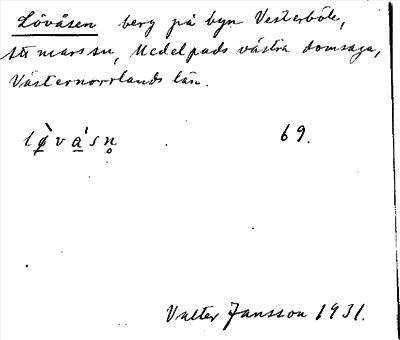 Lövåsen berg på byn Vesterböle,
marssn, Medelpads västra domsaga,
Västernorrlands län.
lø̀va̍sn̥ 69.
Valter Jansson 1931.